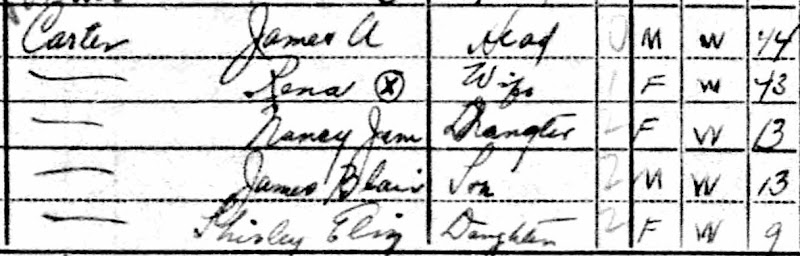 Carter James A Head 0 M W 44
— Rena ⓧ Wife 1 F W 43
— Nancy Jane Daughter 2 F W 13
— James Blair Son 2 M W 13
— Shirley Eliz Daughter 2 F W 9